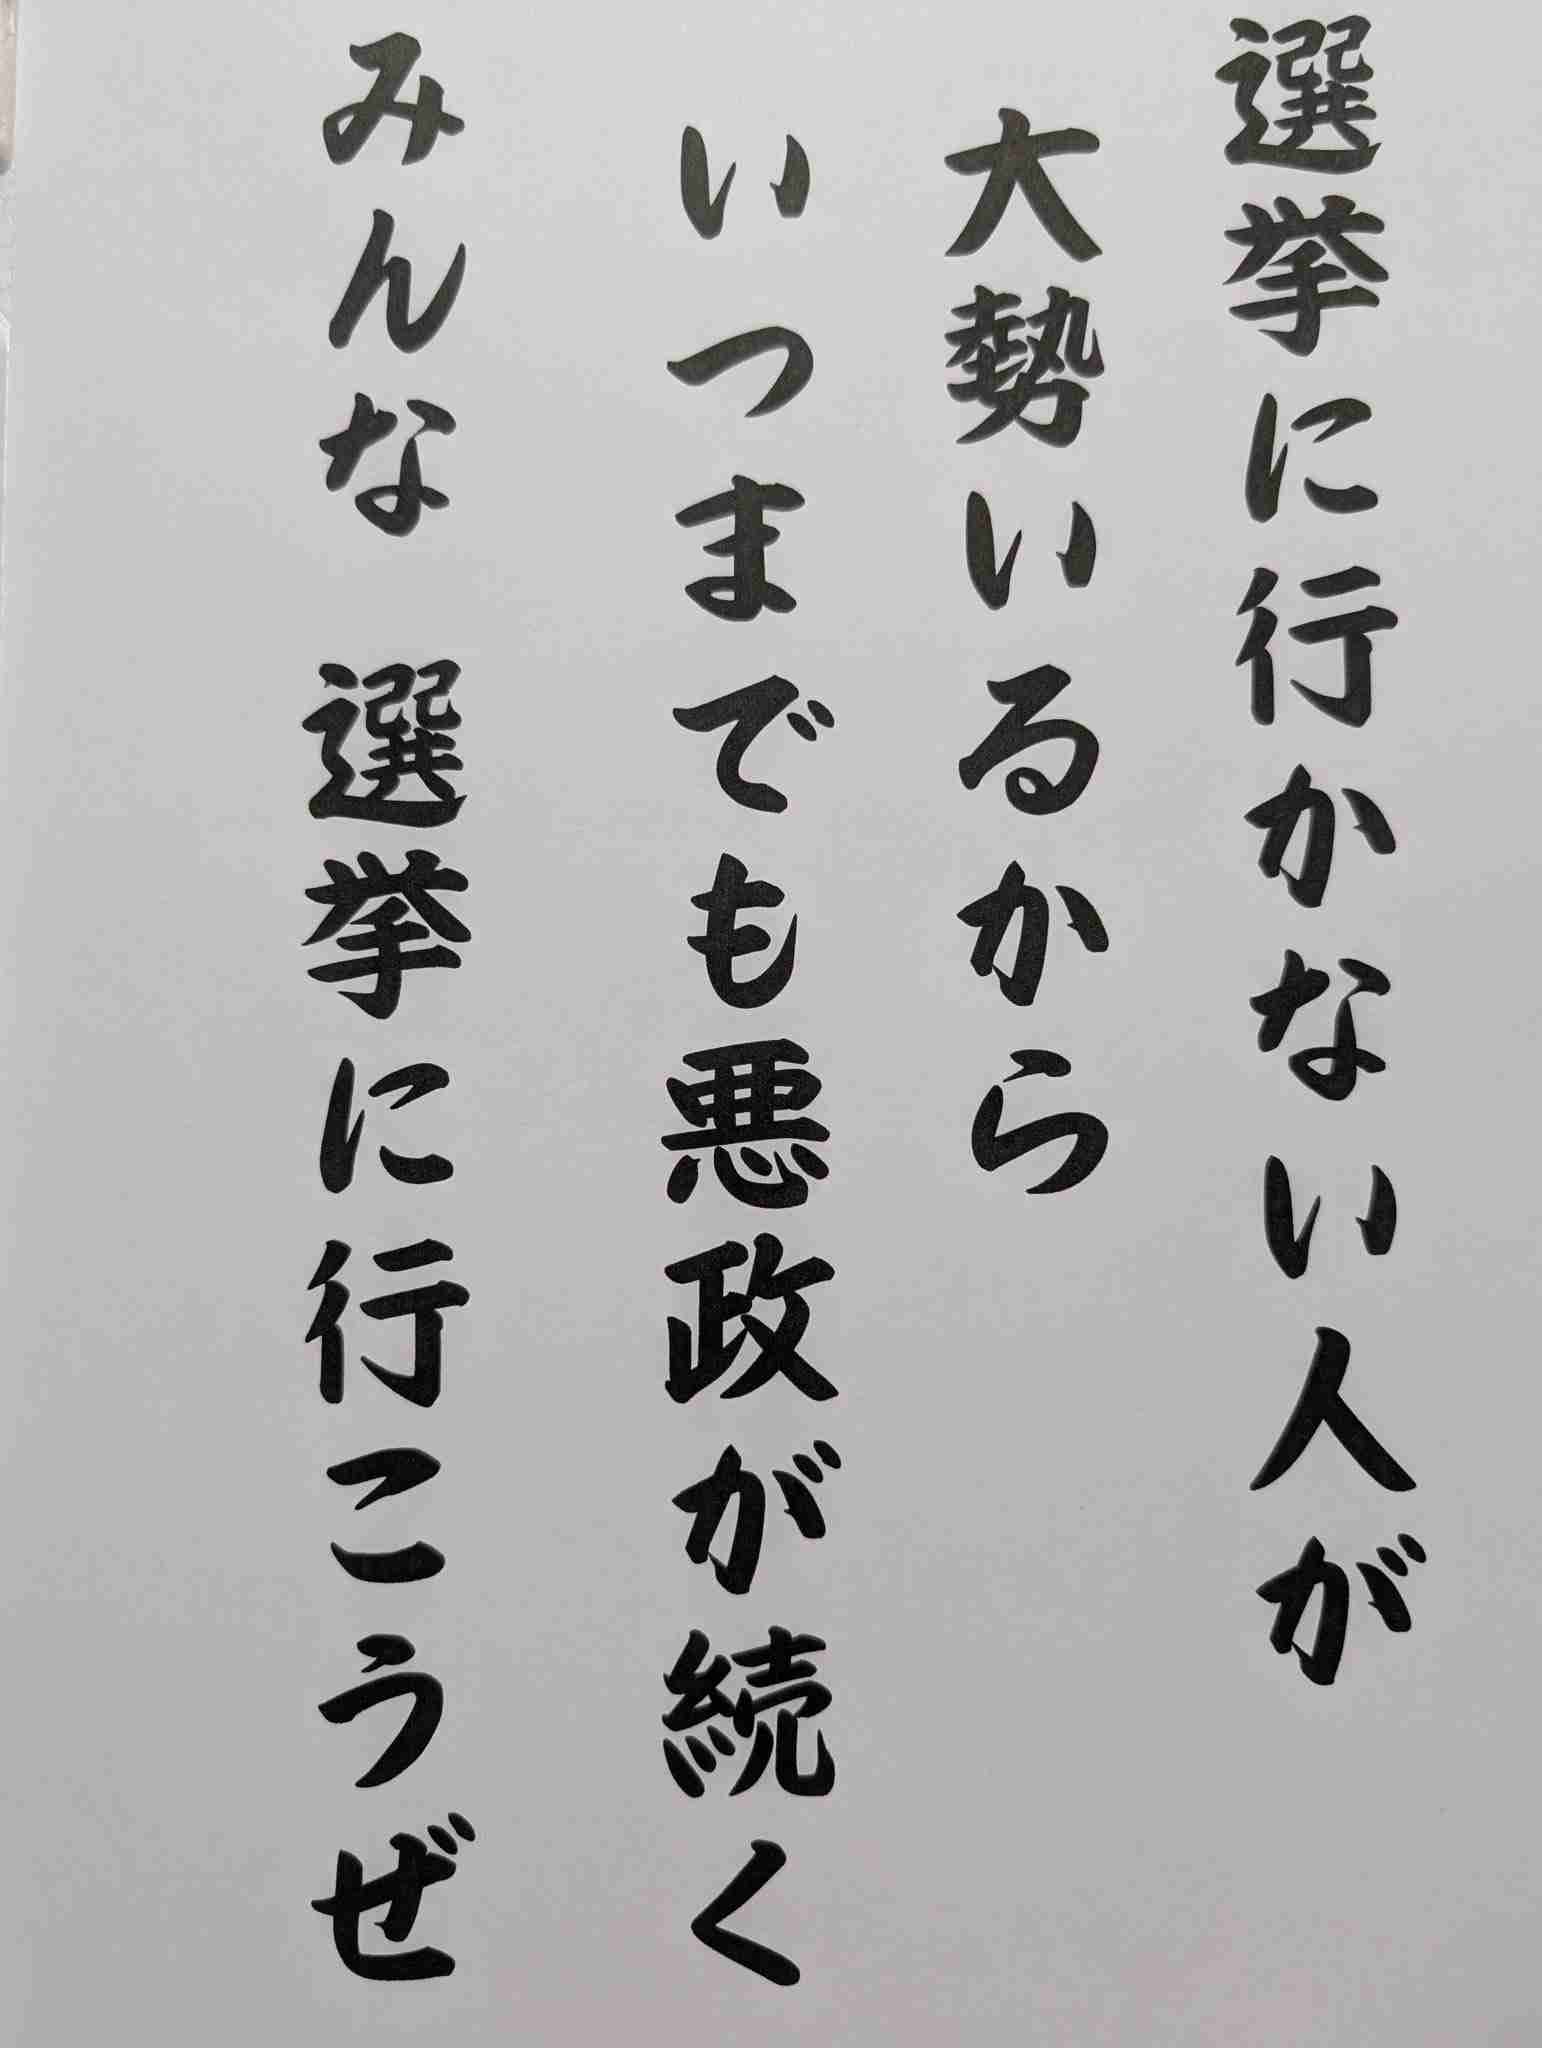 選挙に行かない人が
大勢いるから
いつまでも悪政が続く
みんな 選挙に行こうぜ